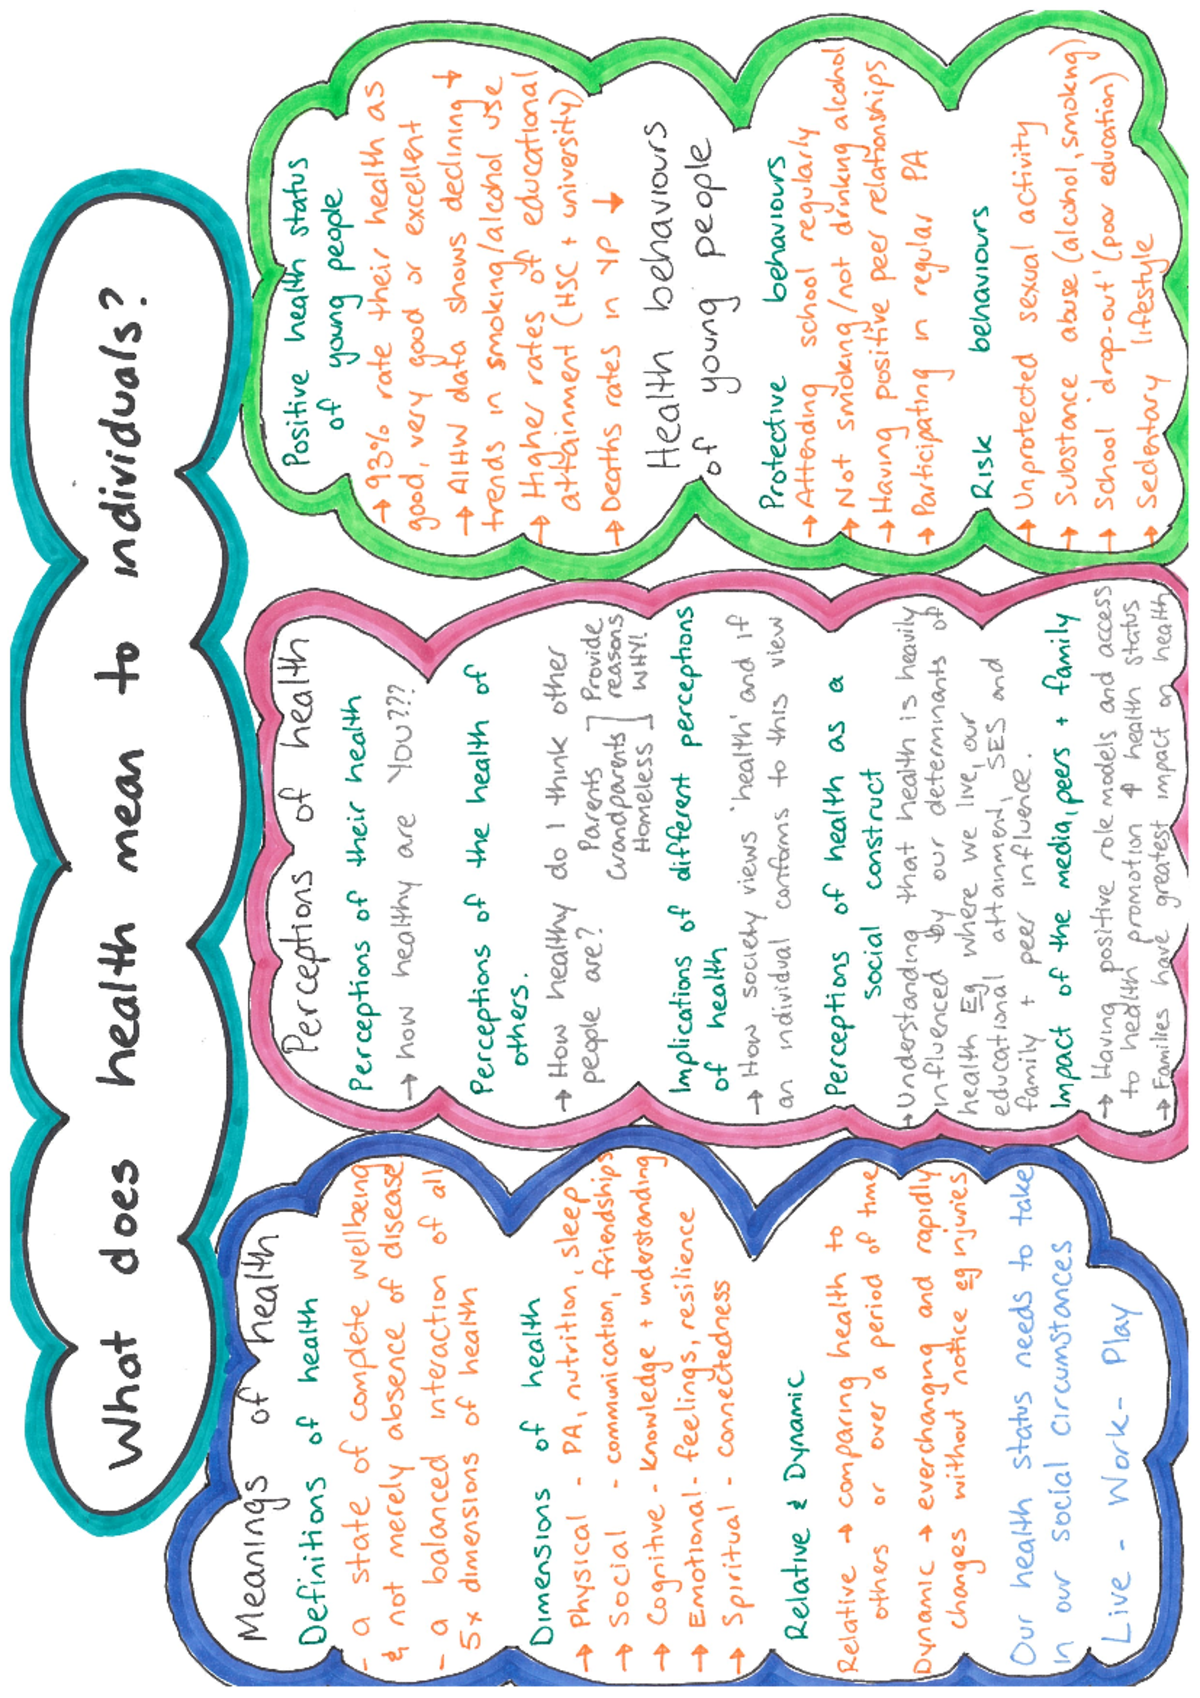 What does health mean to individuals?
Meanings of health
Definitions of health
- a state of complete wellbeing
& not merely absence of disease
- a balanced interaction of all
5x dimensions of health
Dimensions of health
→ Physical - PA, nutrition, sleep
→ Social - communication, friendships
→ Cognitive - Knowledge + understanding
→ Emotional - feelings, resilience
→ Spiritual - connectedness
Relative & Dynamic
Relative → comparing health to
others or over a period of time
Dynamic → everchanging and rapidly
changes without notice eg injuries
Our health status needs to take
in our social circumstances
Live - Work - Play
Perceptions of health
Perceptions of their health
→ how healthy are YOU???
Perceptions of the health of
others.
→ How healthy do I think other
people are? Parents ] Provide
Grandparents ] reasons
Homeless ] WHY!
Implications of different perceptions
of health
→ How society views 'health' and if
an individual conforms to this view
Perceptions of health as a
social construct
→ Understanding that health is heavily
influenced by our determinants of
health Eg where we live, our
educational attainment, SES and
family + peer influence.
Impact of the media, peers + family
→ Having positive role models and access
to health promotion ↑ health status
→ Families have greatest impact on health
Positive health status
of young people
→ 93% rate their health as
good, very good or excellent
→ AIHW data shows declining ↓
trends in smoking/alcohol use
→ Higher rates of educational
attainment (HSC + university)
→ Deaths rates in YP ↓
Health behaviours
of young people
Protective behaviours
→ Attending school regularly
→ Not smoking/not drinking alcohol
→ Having positive peer relationships
→ Participating in regular PA
Risk behaviours
→ Unprotected sexual activity
→ Substance abuse (alcohol, smoking)
→ School 'drop-out' (poor education)
→ Sedentary lifestyle